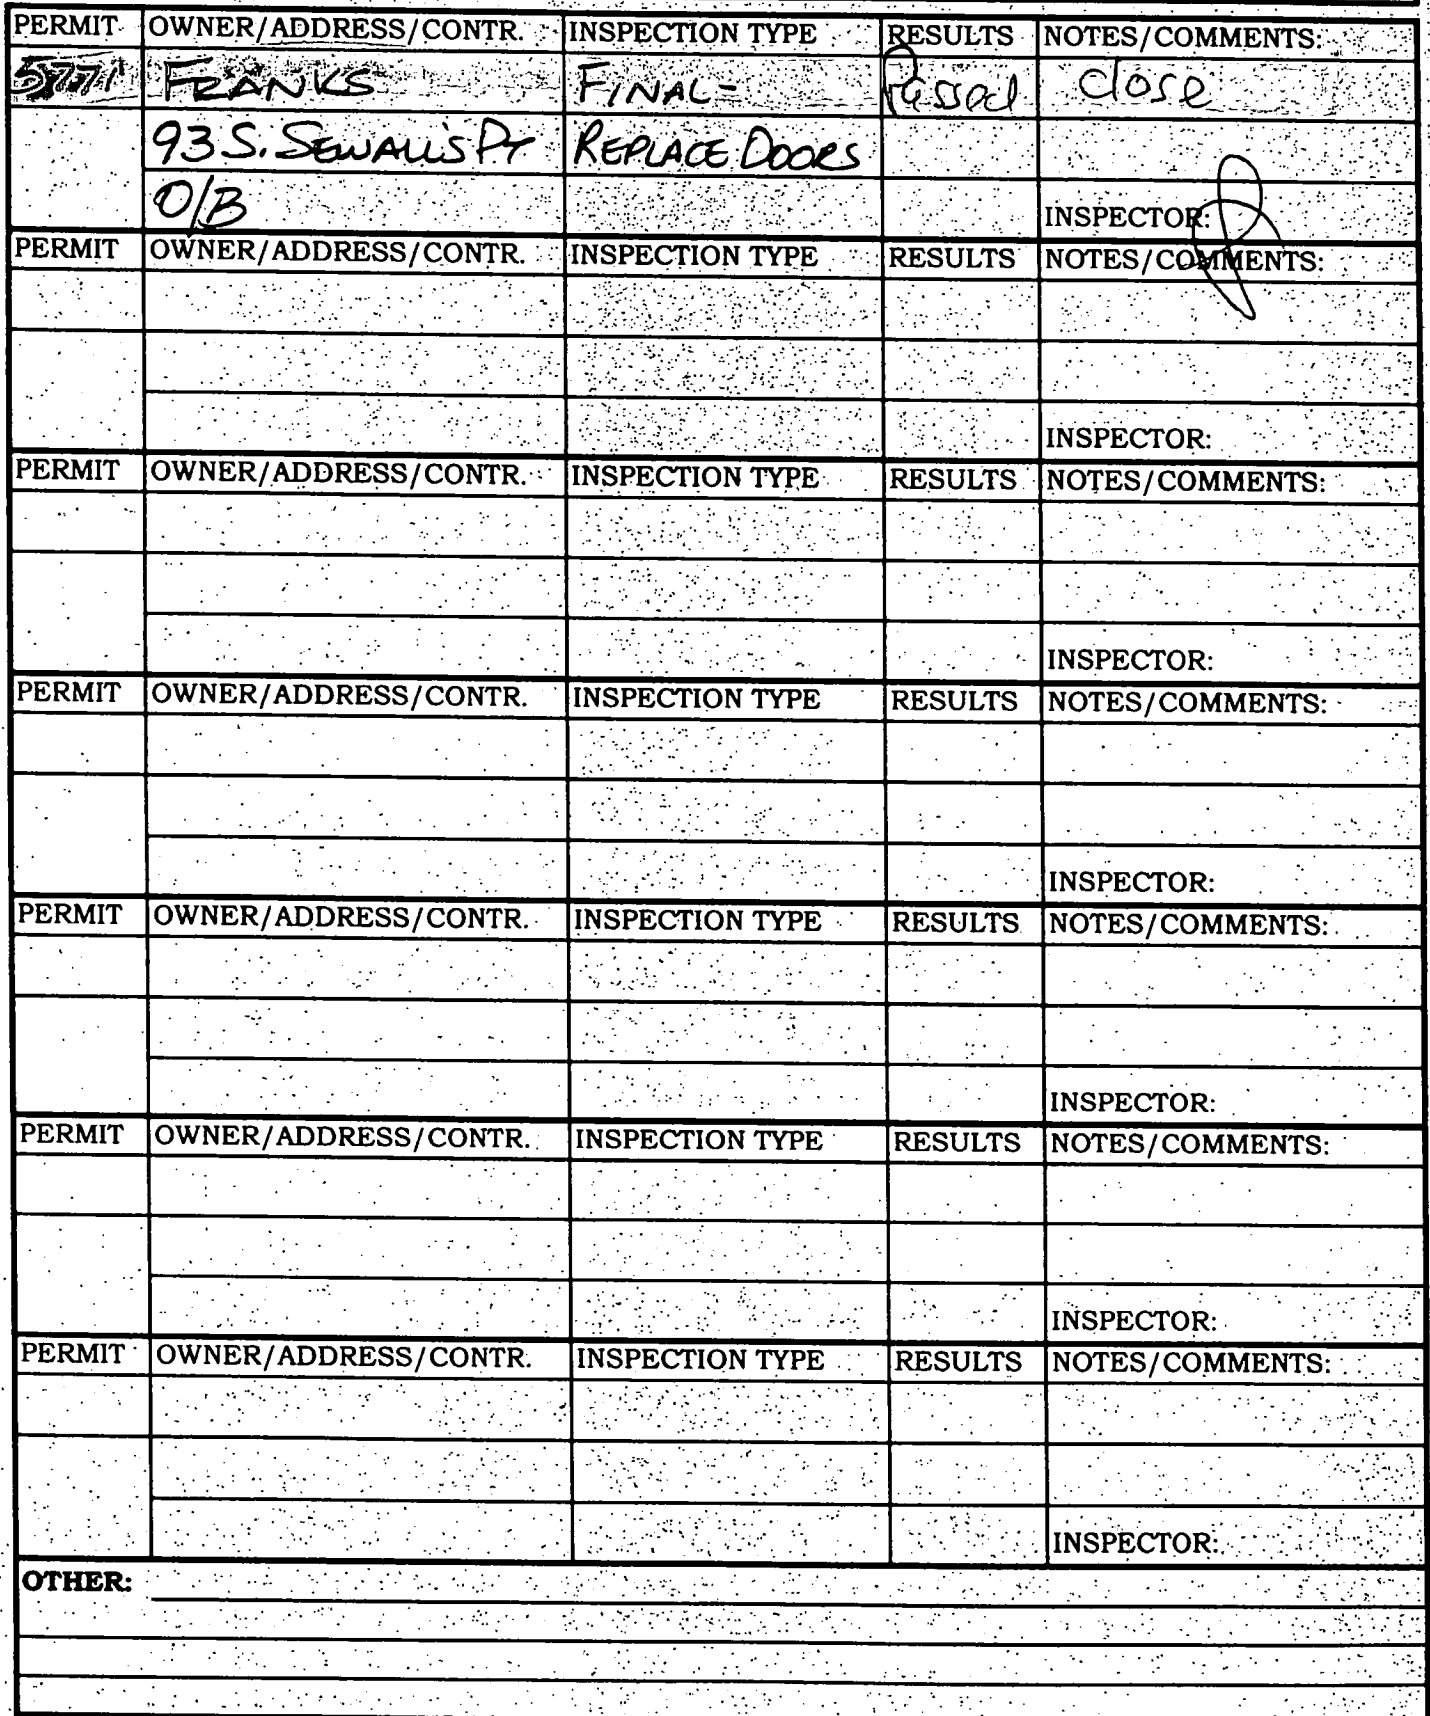 PERMIT OWNER/ADDRESS/CONTR. INSPECTION TYPE RESULTS NOTES/COMMENTS:
5771 FRANKS FINAL- Passed close
93 S. SEWALL'S PT REPLACE DOORS
O/B INSPECTOR:
PERMIT OWNER/ADDRESS/CONTR. INSPECTION TYPE RESULTS NOTES/COMMENTS:
INSPECTOR:
PERMIT OWNER/ADDRESS/CONTR. INSPECTION TYPE RESULTS NOTES/COMMENTS:
INSPECTOR:
PERMIT OWNER/ADDRESS/CONTR. INSPECTION TYPE RESULTS NOTES/COMMENTS:
INSPECTOR:
PERMIT OWNER/ADDRESS/CONTR. INSPECTION TYPE RESULTS NOTES/COMMENTS:
INSPECTOR:
PERMIT OWNER/ADDRESS/CONTR. INSPECTION TYPE RESULTS NOTES/COMMENTS:
INSPECTOR:
PERMIT OWNER/ADDRESS/CONTR. INSPECTION TYPE RESULTS NOTES/COMMENTS:
INSPECTOR:
OTHER: